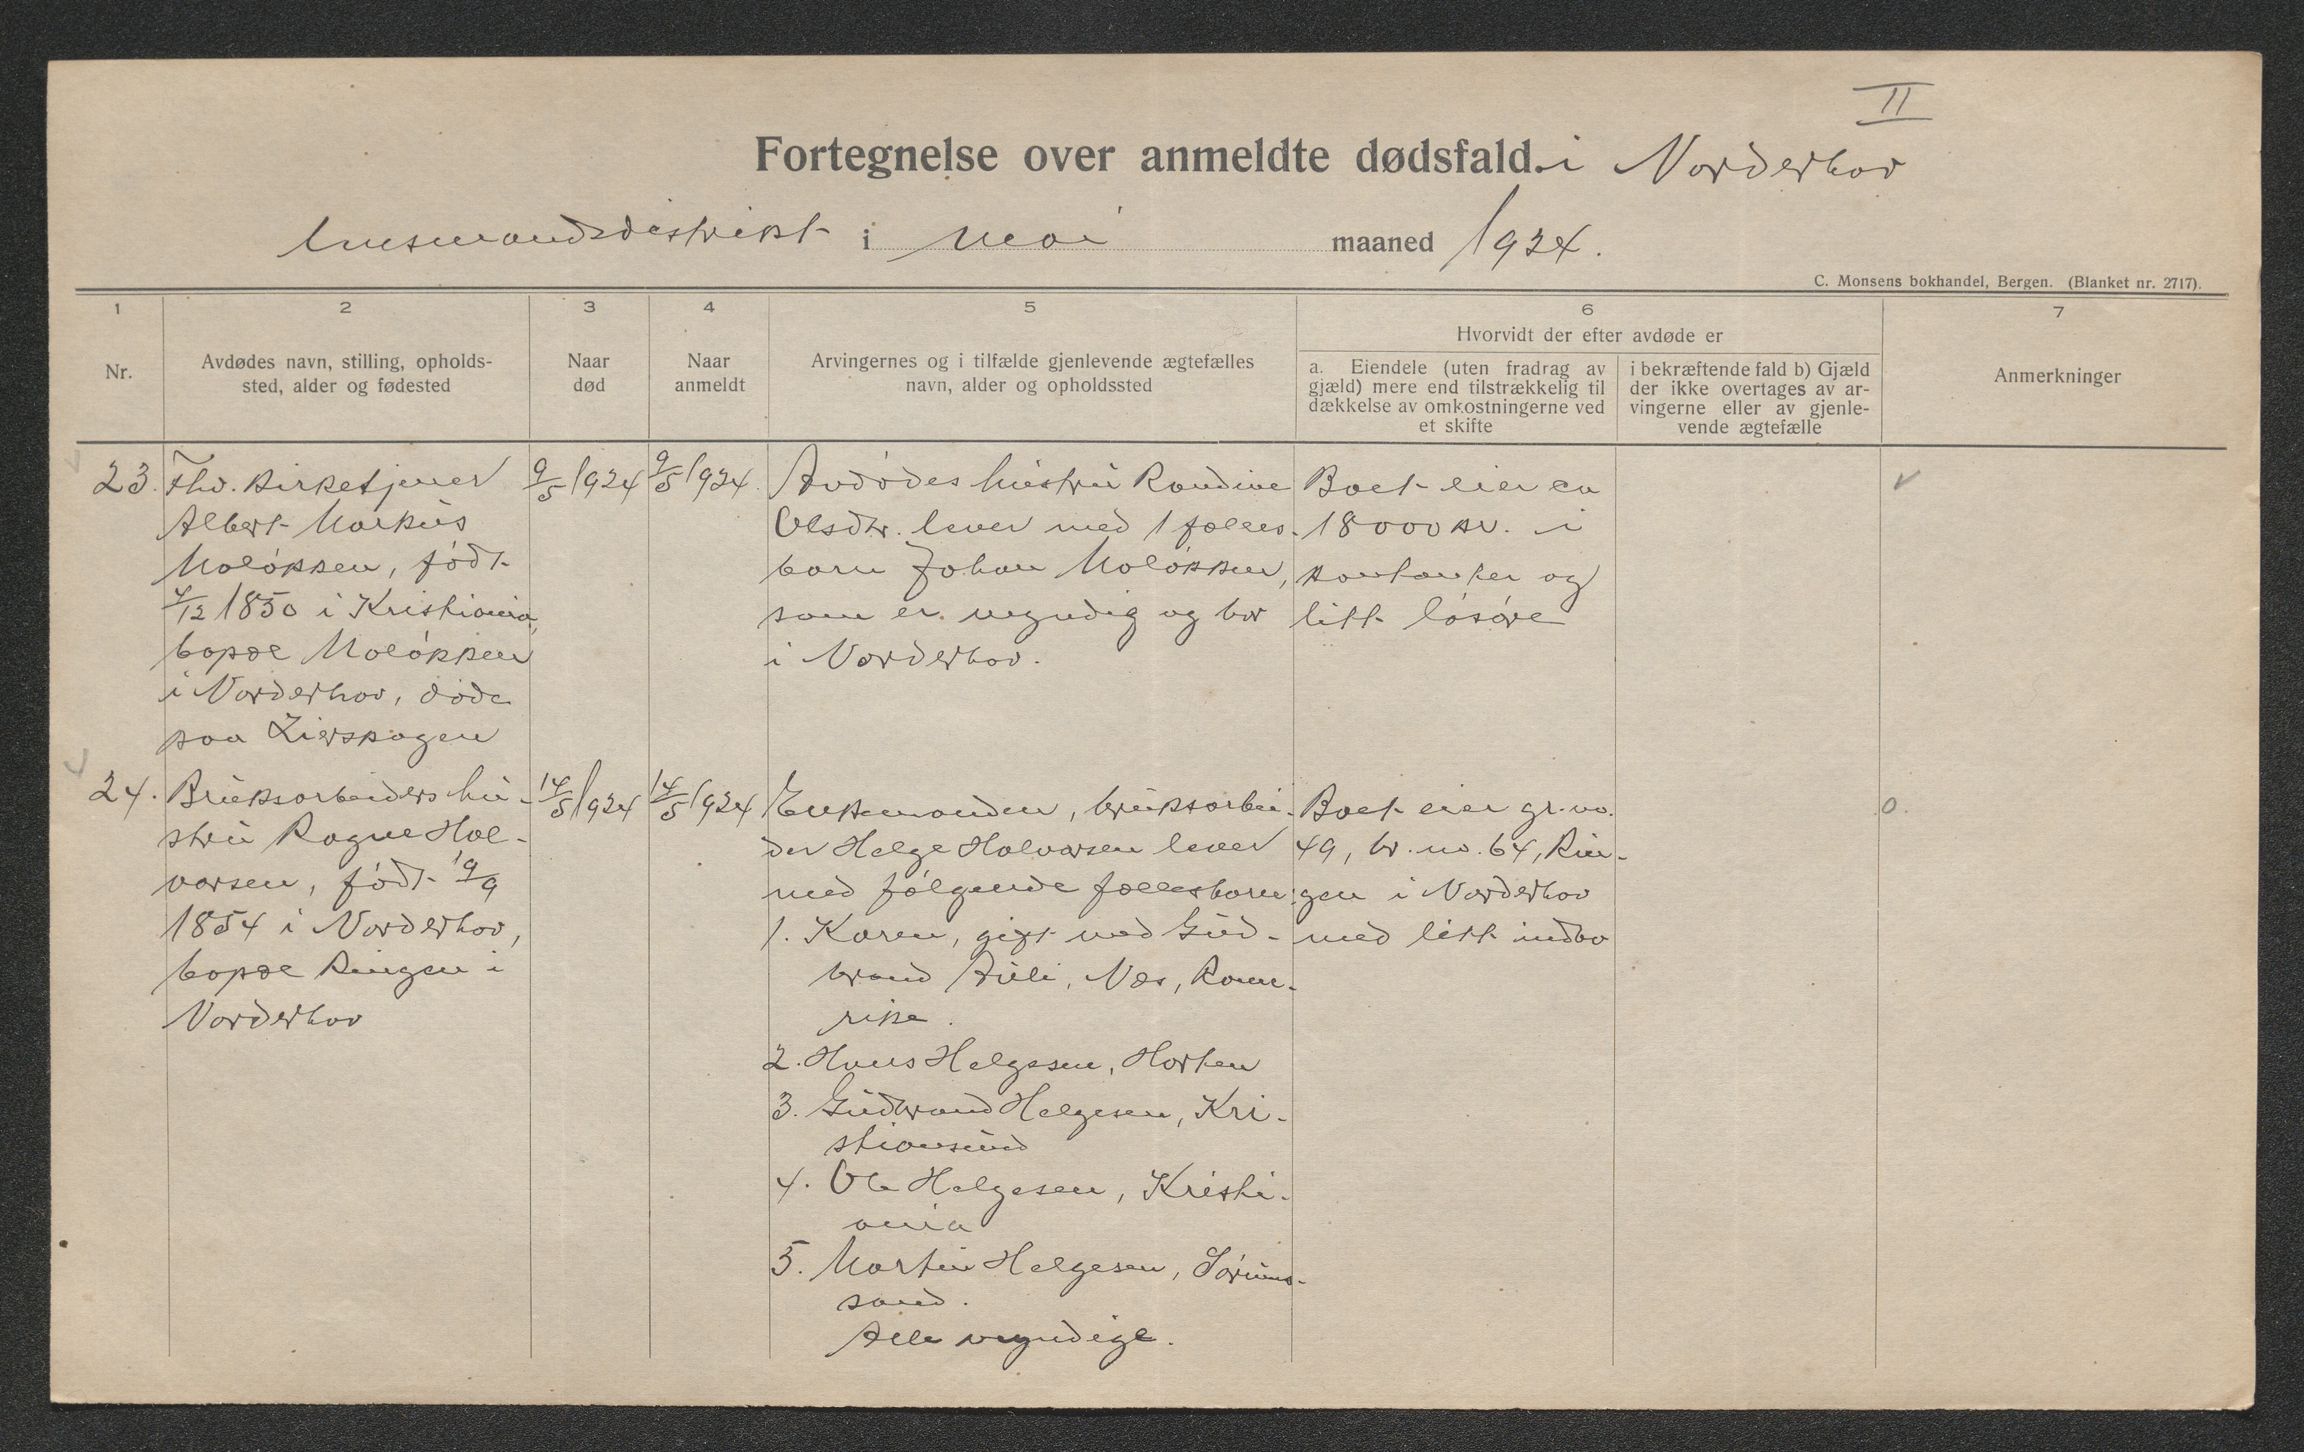 II
Fortegnelse over anmeldte dødsfald. i Norderhov
lensmandsdistrikt i Mai maaned 1924.
C. Monsens bokhandel, Bergen. (Blanket nr. 2717).
1
2
3
4
5
6
7
Nr.
Avdødes navn, stilling, opholds-
sted, alder og fødested
Naar
død
Naar
anmeldt
Arvingernes og i tilfælde gjenlevende ægtefælles
navn, alder og opholdssted
Hvorvidt der efter avdøde er
a. Eiendele (uten fradrag av
gjæld) mere end tilstrækkelig til
dækkelse av omkostningerne ved
et skifte
i bekræftende fald b) Gjæld
der ikke overtages av ar-
vingerne eller av gjenle-
vende ægtefælle
Anmerkninger
23.
Fhv. Kirketjener
Albert Markus
Moløkken, født
4/12 1850 i Kristiania,
bopæl Moløkken
i Norderhov, døde
paa Lierskogen
9/5 1924
9/5 1924.
Avdødes hustru Randine
Olsdtr. lever med 1 fælles-
barn Johan Moløkken,
som er myndig og bor
i Norderhov.
Boet eier ca
18000 kr. i
kontanter og
litt løsøre
24.
Bruksarbeiders hu-
stru Ragne Hal-
varsen, født 19/9
1854 i Norderhov,
bopæl Ringen i
Norderhov
14/5 1924
14/5 1924
Enkemanden, bruksarbei-
der Helge Halvarsen lever
med følgende fællesbarn:
1. Karen, gift med Gud-
brand Auli, Nes, Rome-
rike.
2. Hans Helgesen, Horten
3. Gudbrand Helgesen, Kri-
stiansund
4. Ole Helgesen, Kristi-
ania
5. Martin Helgesen, Sørum-
sand.
Alle myndige.
Boet eier gr. no.
49, br. no. 64, Rin-
gen i Norderhov
med litt indbo
0.